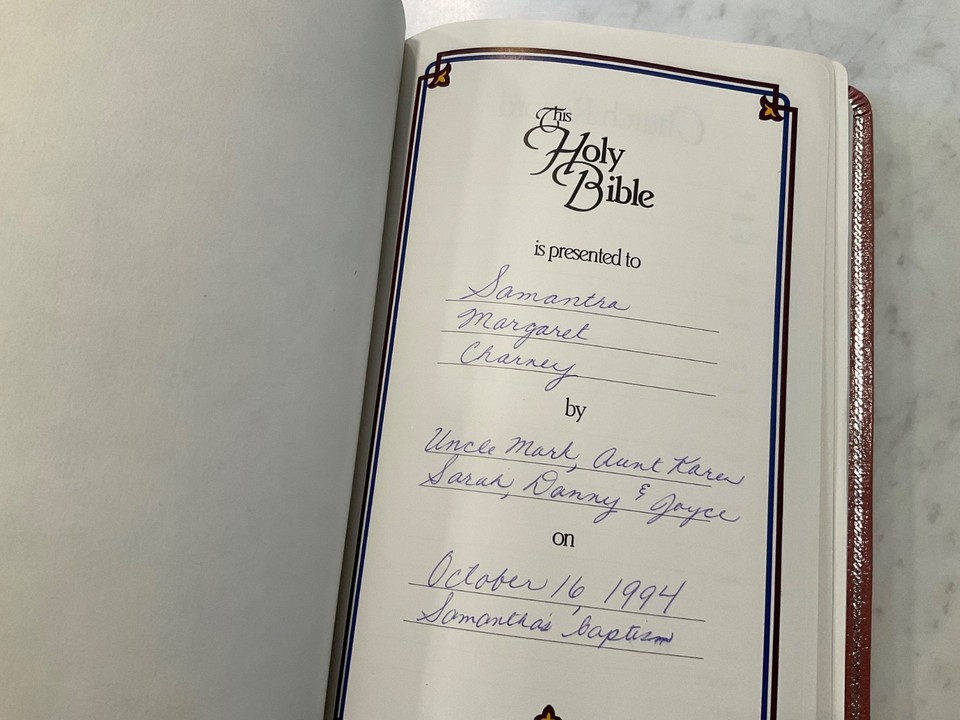 This
Holy
Bible
is presented to
Samantha
Margaret
Charney
by
Uncle Mark, Aunt Karen
Sarah, Danny & Joyce
on
October 16, 1994
Samantha's Baptism